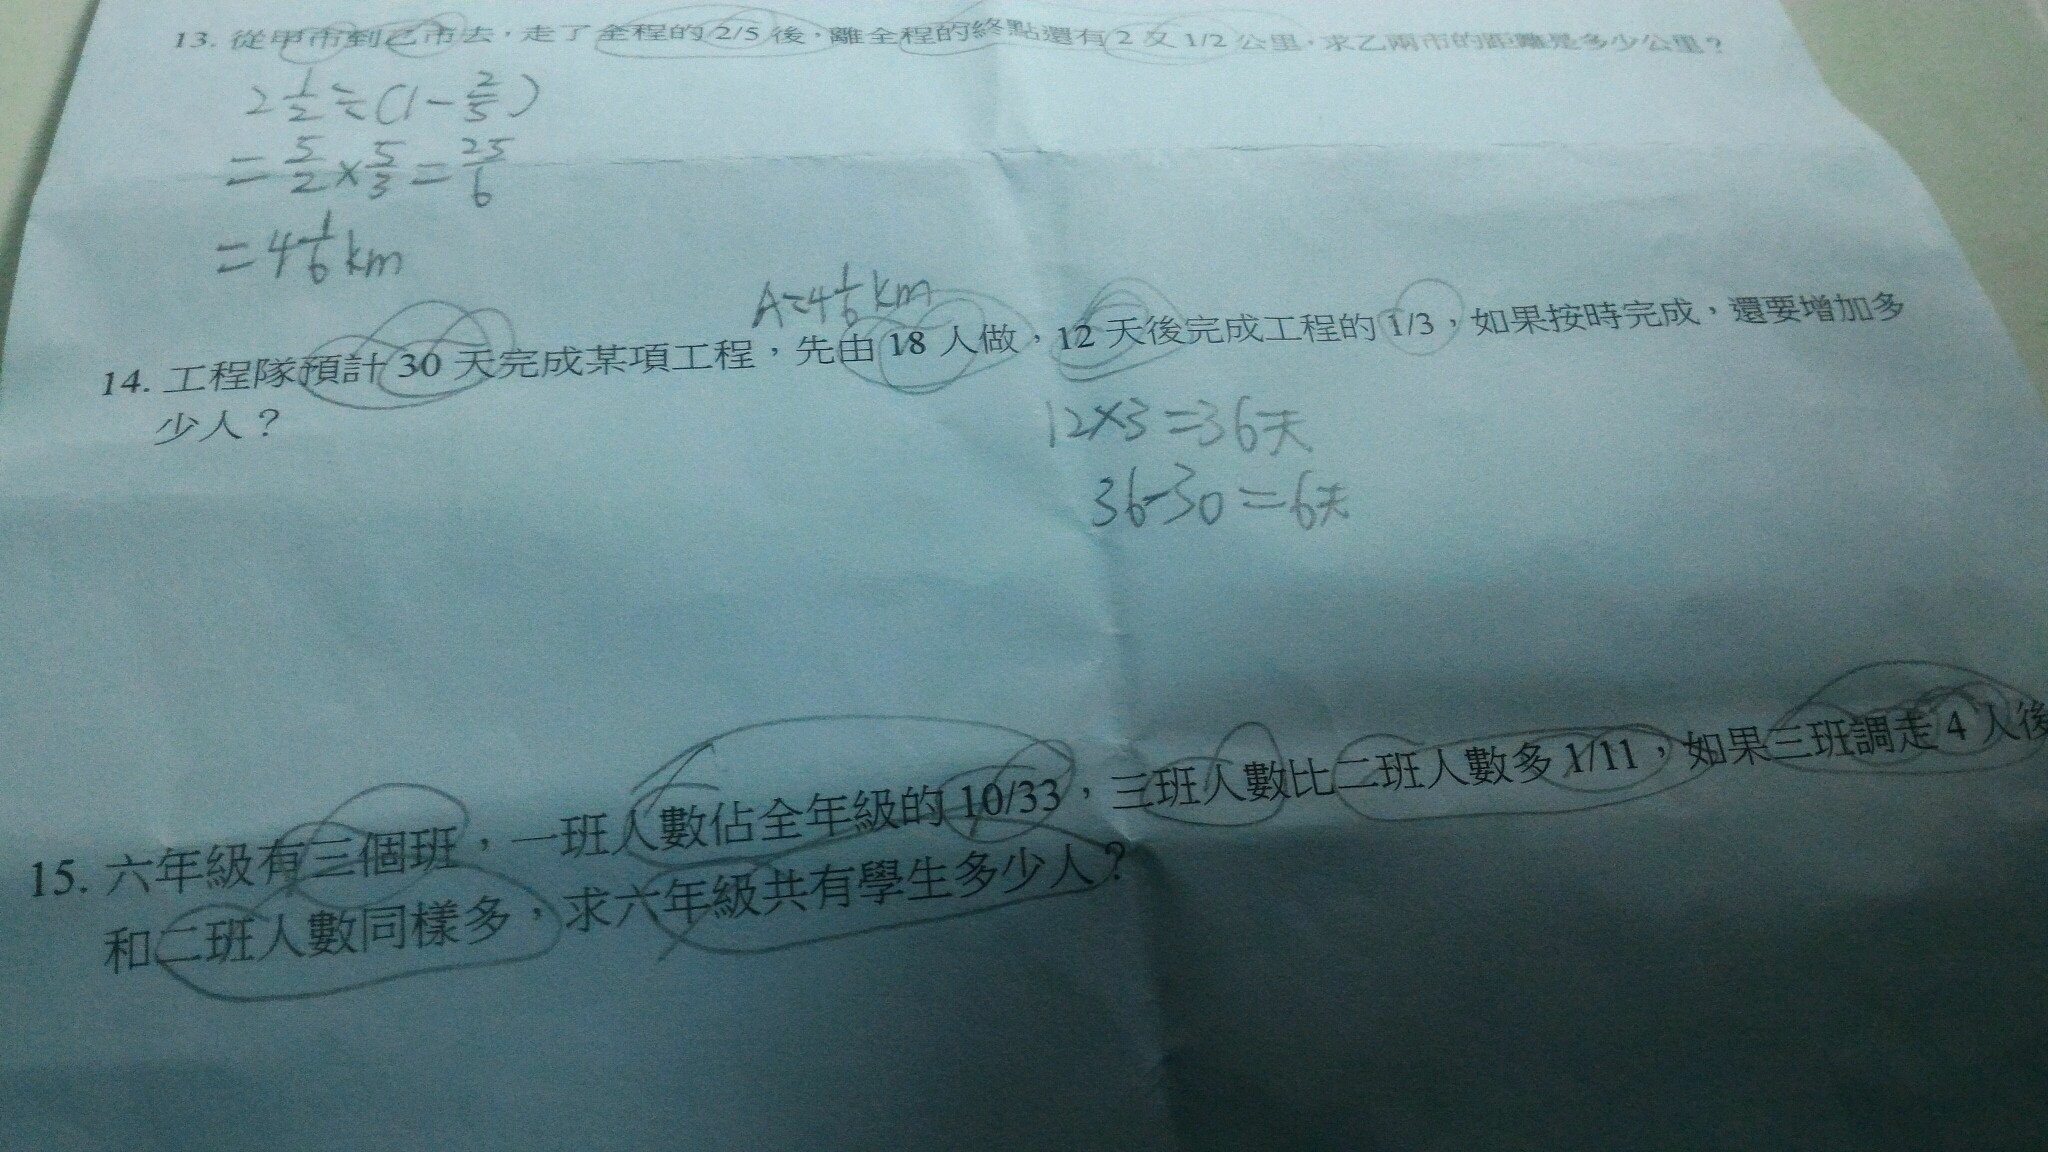 13. 從甲市到乙市去，走了全程的 2/5 後，離全程的終點還有 2 又 1/2 公里，求乙兩市的距離是多少公里？
2 1/2 ÷ (1 - 2/5)
= 5/2 × 5/3 = 25/6
= 4 1/6 km
A = 4 1/6 km
14. 工程隊預計 30 天完成某項工程，先由 18 人做，12 天後完成工程的 1/3，如果按時完成，還要增加多
少人？
12×3=36天
36-30=6天
15. 六年級有三個班，一班人數佔全年級的 10/33，三班人數比二班人數多 1/11，如果三班調走 4 人後
和二班人數同樣多，求六年級共有學生多少人？